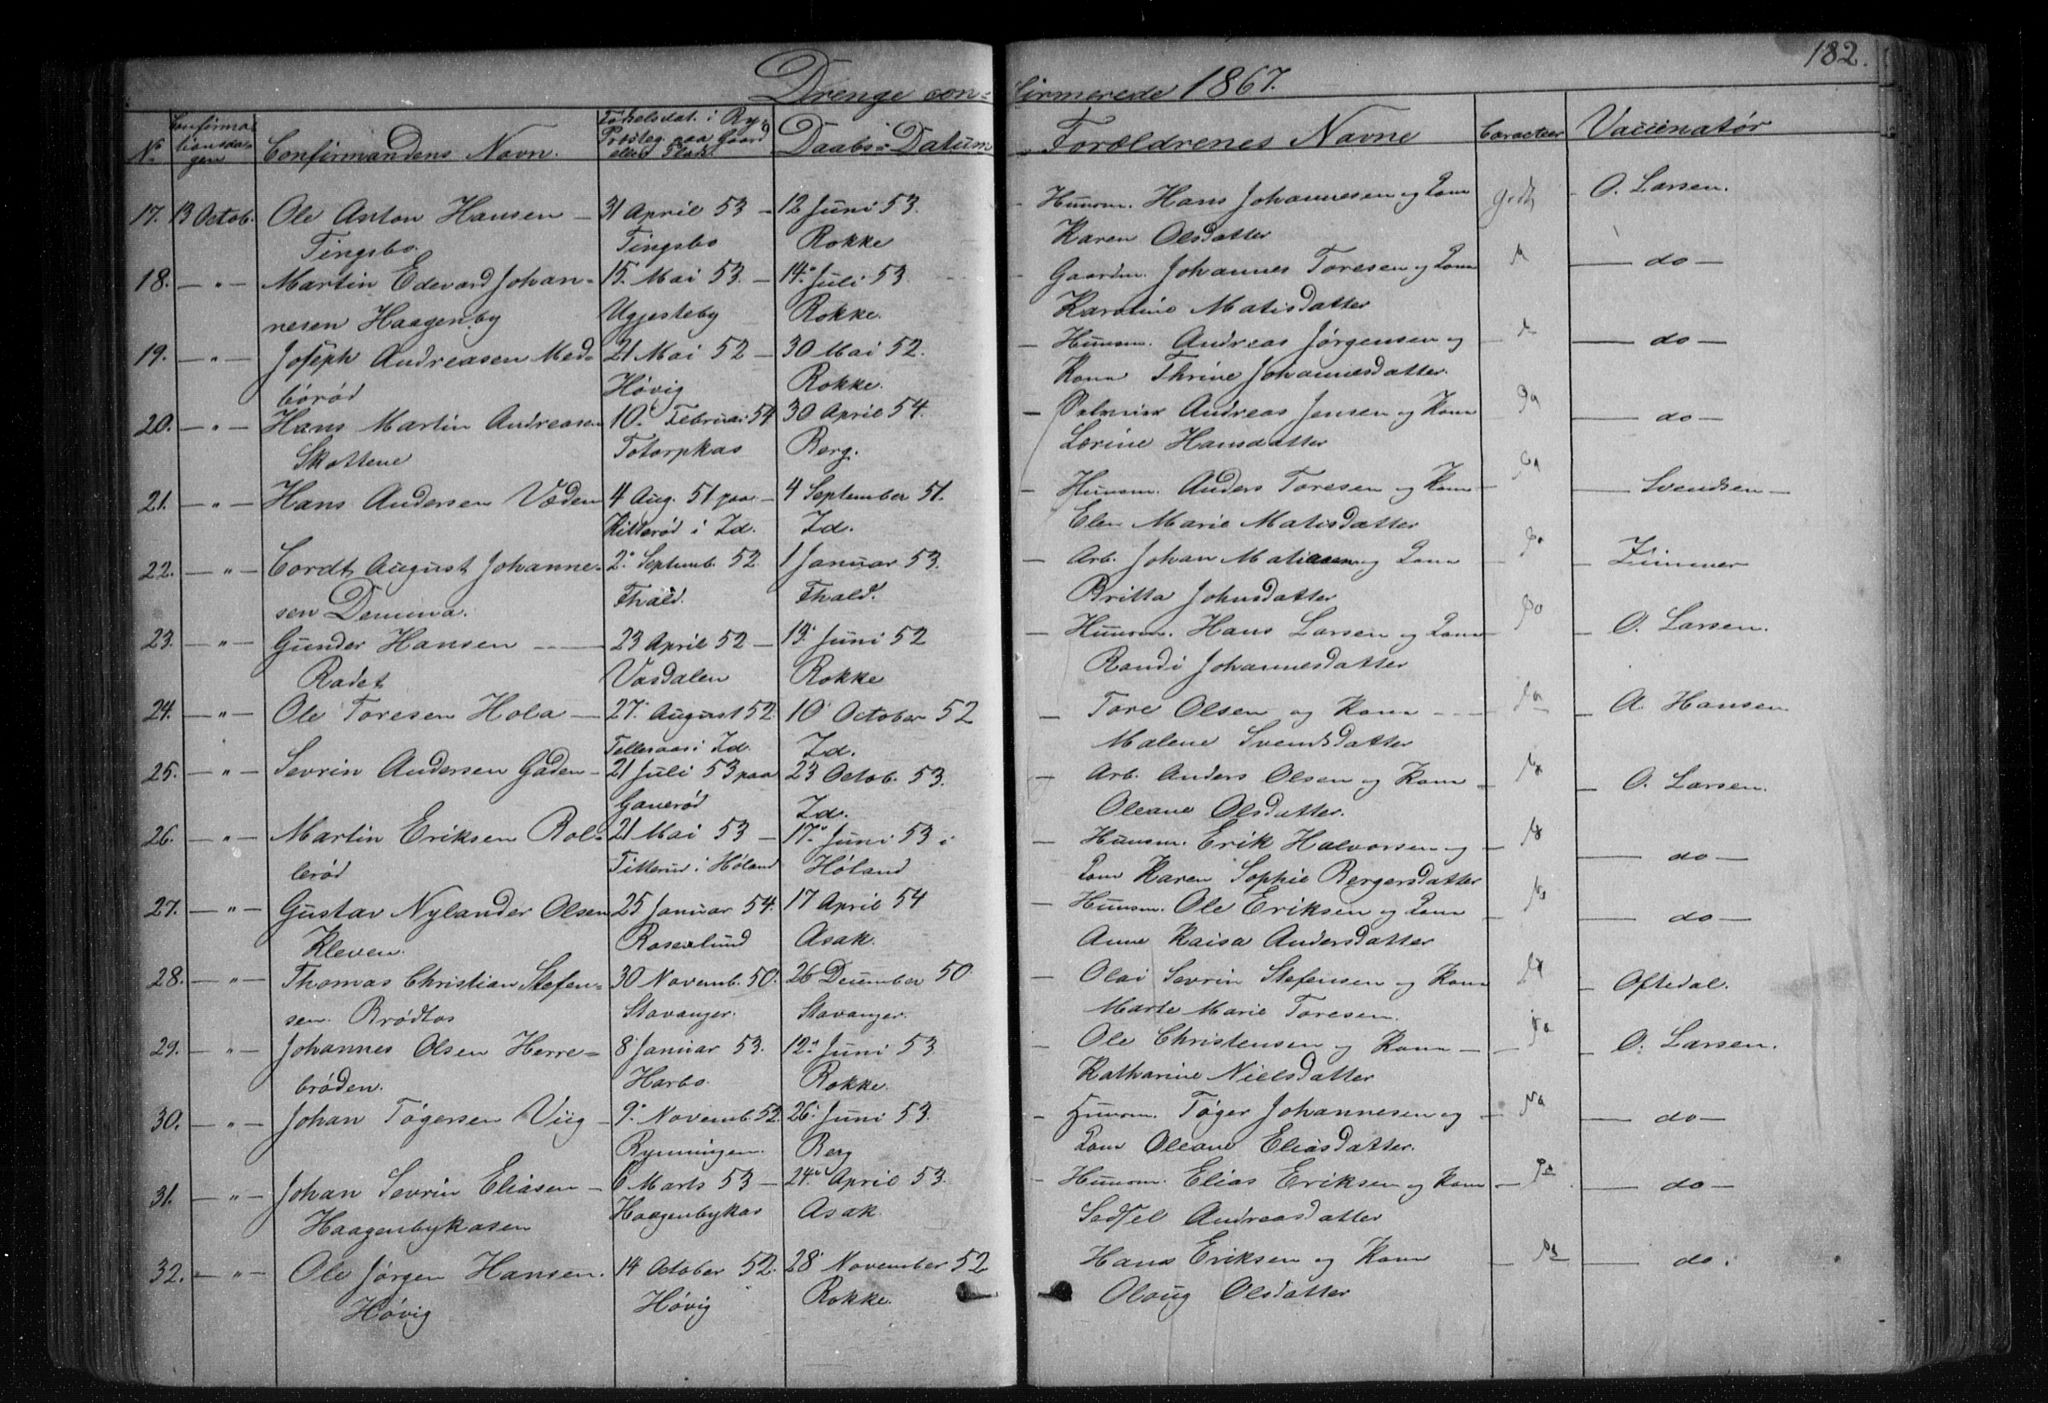 182.
Drenge confirmerede 1867.
No Confirmationsdagen Confirmandens Navn. Fødselsdat. i By, Præsteg. paa Gaard eller Plads Daabs-Datum Forældrenes Navne Caracteer Vaccinatør
17. 13 Octob. Ole Anton Hansen — 31 April 53 — 12 Juni 53. — Huusm. Hans Johannesen og Kone godt — O. Larsen.
Tingsbo. Tingsbo Rokke Karen Olsdatter
18. — " — Martin Edevard Johan- 15. Mai 53. — 14. Juli 53 — Gaardm. Johannes Toresen og Kone — do —
nesen Haagenby Ugjesteby Rokke. Karoline Matisdatter
19. — " — Joseph Andreasen Med- 21 Mai 52 — 30 Mai 52. — Huusm. Andreas Jørgensen og — do —
börød Høvig Rokke. Kone Thrine Johannesdatter.
20. — " — Hans Martin Andreasen 10. Februar 54 30 April 54. — Andreas Jensen og Kone — do —
Skottene Totorpkas Berg. Lorine Hansdatter
21. — " — Hans Andersen Væden 4 Aug. 51 paa — 4 September 51. — Huusm. Anders Toresen og Kone — Svendsen —
Hillerød i Id. Id. Elen Marie Matisdatter
22. — " — Cordt August Johanne- 2. Septemb. 52 1 Januar 53. — Arb. Johan Matiasen og Kone Zimmer
sen Demma. Fhald. Fhald. Britta Johnsdatter
23. — " — Gunder Hansen — 23 April 52 — 13. Juni 52 — Huusm. Hans Larsen og Kone — O. Larsen.
Rødet Vasdalen Rokke Randi Johannesdatter
24. — " — Ole Toresen Hola — 27. August 52. 10 October 52 — Tore Olsen og Kone — A. Hansen
Tellesaas i Id. Id. Malene Svendsdatter
25. — " — Sevrin Andersen Gaden — 21 Juli 53 paa 23 Octob. 53. — Arb. Anders Olsen og Kone — O. Larsen.
Gauerød Id. Oleane Olsdatter.
26. — " — Martin Eriksen Rol- 21 Mai 53 — 17. Juni 53 i — Huusm. Erik Halvorsen og — do —
lerød Titterud i Høland Høland Kone Karen Sophie Bergersdatter
27. — " — Gustav Nylander Olsen 25 Januar 54. 17 April 54 — Huusm. Ole Eriksen og Kone — do —
Kleven. Roselund Asak. Anne Kaisa Andersdatter
28. — " — Thomas Christian Stefen- 30 Novemb. 50. 26 December 50 — Olai Sevrin Stefensen og Kone — Oftedal.
sen. Brødløs Stavanger. Stavanger. Marte Marie Toresen.
29. — " — Johannes Olsen Herre- 8 Januar 53. 12. Juni 53 — Ole Christensen og Kone — O. Larsen.
brøden. Harbo. Rokke. Katharine Nielsdatter
30. — " — Johan Tøgersen Viig — 9. Novemb. 52. 26. Juni 53. — Huusm. Tøger Johannesen og — do —
Rynningen. Berg Kone Oleane Eliasdatter.
31. — " — Johan Sevrin Eliasen — 6 Marts 53 — 24. April 53. — Huusm. Elias Eriksen og Kone — do —
Haagenbykasen Haagenbykas Asak. Sedsel Andreasdatter
32. — " — Ole Jørgen Hansen. 14 October 52. 28 November 52 Hans Eriksen og Kone — do.
Høvig Høvig Rokke. Oloug Olsdatter